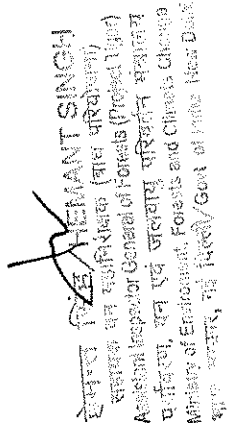 हेमन्त सिंह/HEMANT SINGH
सहायक वन महानिरीक्षक (बाघ परियोजना)
Assistant Inspector General of Forests (Project Tiger)
पर्यावरण, वन एवं जलवायु परिवर्तन मंत्रालय
Ministry of Environment, Forests and Climate Change
नई दिल्ली/Govt of India New Delhi